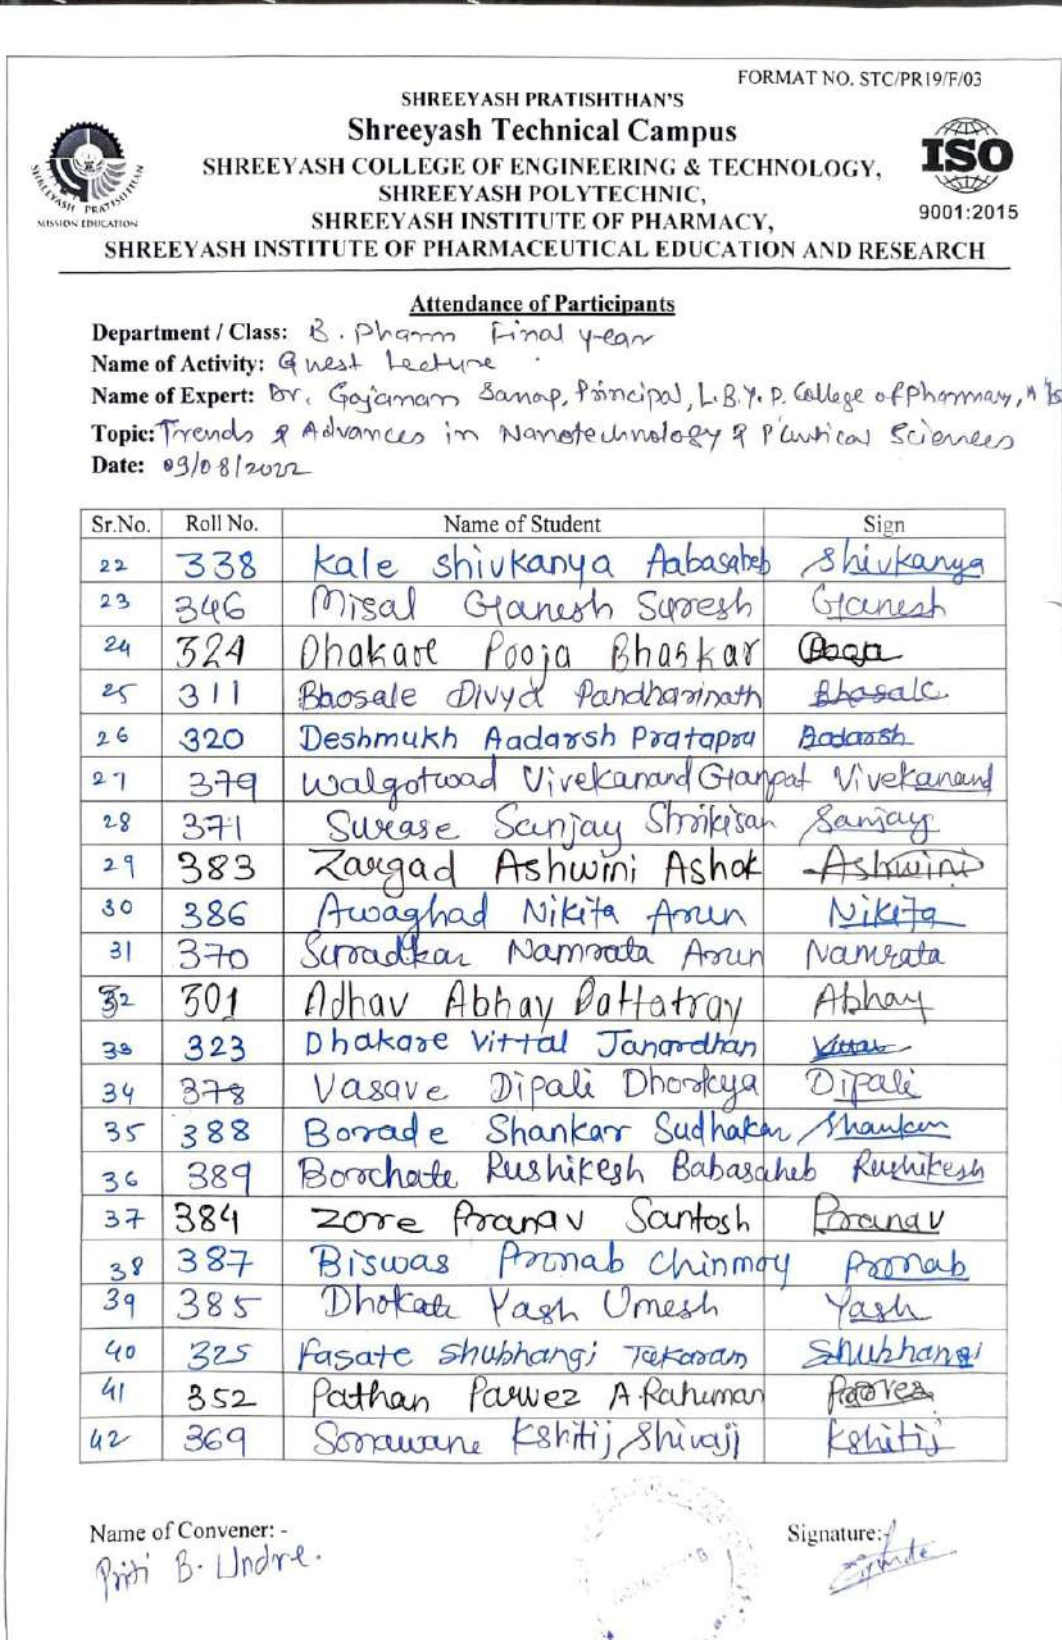 FORMAT NO. STC/PR19/F/03
SHREEYASH PRATISHTHAN'S
Shreeyash Technical Campus
SHREEYASH COLLEGE OF ENGINEERING & TECHNOLOGY,
SHREEYASH POLYTECHNIC,
SHREEYASH INSTITUTE OF PHARMACY,
SHREEYASH INSTITUTE OF PHARMACEUTICAL EDUCATION AND RESEARCH
SHREEYASH PRATISHTHAN
MISSION EDUCATION
ISO
9001:2015
Attendance of Participants
Department / Class: B. Pharm Final year
Name of Activity: Guest Lecture
Name of Expert: Dr. Gajanan Sanap, Principal, L.B.Y.P. College of Pharmacy,
Topic: Trends & Advances in Nanotechnology & P'ceutical Sciences
Date: 09/08/2022
Sr.No. Roll No. Name of Student Sign
22 338 Kale Shivkanya Aabasaheb Shivkanya
23 346 Misal Ganesh Suresh Ganesh
24 324 Dhakare Pooja Bhaskar Pooja
25 311 Bhosale Divya Pandharinath Bhosale
26 320 Deshmukh Aadarsh Pratapra Aadarsh
27 379 Walgotwad Vivekanand Ganpat Vivekanand
28 371 Surase Sanjay Shrikisan Sanjay
29 383 Zargad Ashwini Ashok Ashwini
30 386 Awaghad Nikita Arun Nikita
31 370 Surradkar Namrata Arun Namrata
32 301 Adhav Abhay Dattatray Abhay
33 323 Dhakare Vittal Janardhan Vittal
34 378 Vasave Dipali Dhorkya Dipali
35 388 Borade Shankar Sudhakar Shankar
36 389 Borchate Rushikesh Babasaheb Rushikesh
37 384 Zore Pranav Santosh Pranav
38 387 Biswas Pronab Chinmoy Pronab
39 385 Dhokate Yash Umesh Yash
40 325 Fasate Shubhangi Tukaram Shubhangi
41 352 Pathan Parwez A. Rahuman Parvez
42 369 Sonawane Kshitij Shivaji Kshitij
Name of Convener: - Signature:-
Priti B. Undre.